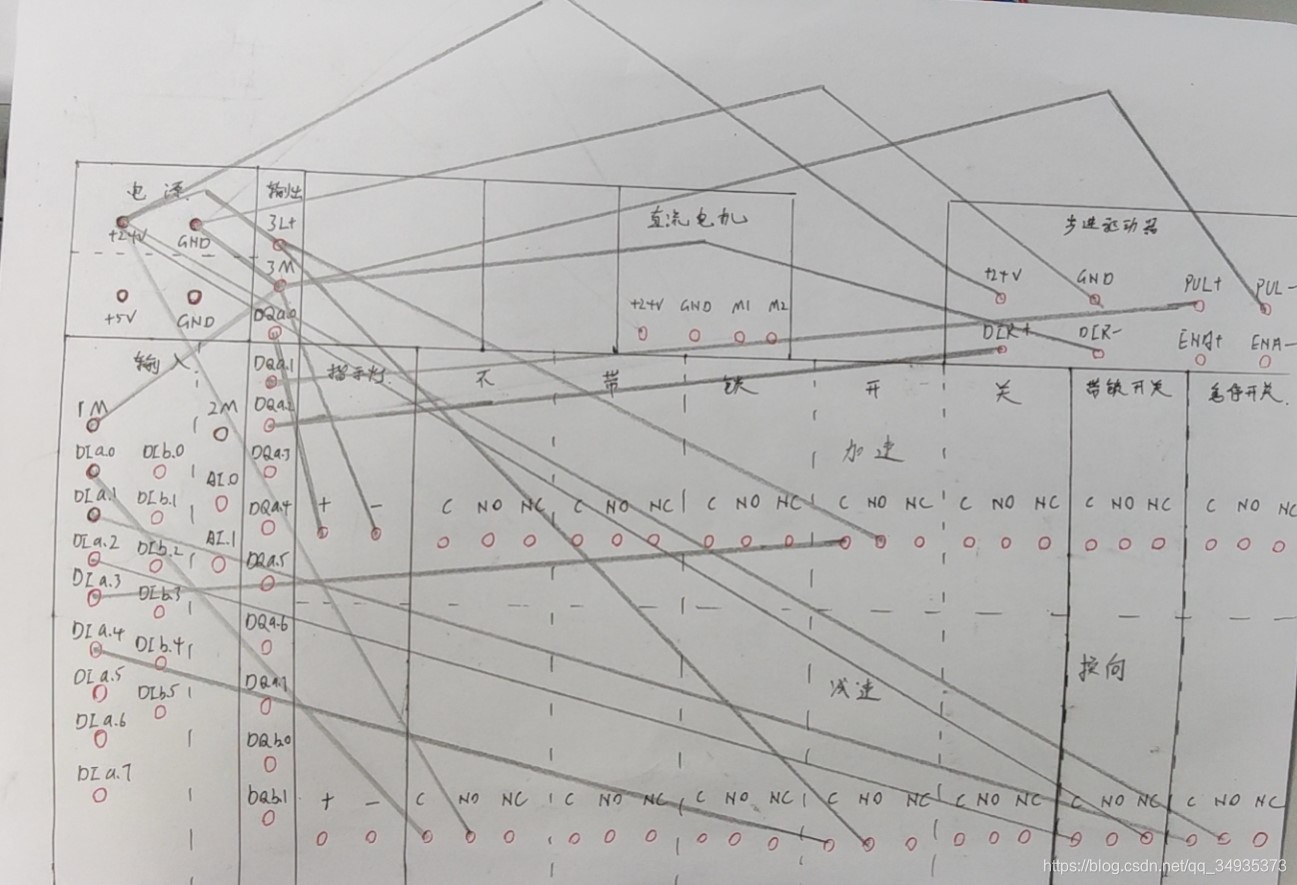 电源 输出
+24V GND 3L+
3M
+5V GND DQa.0
直流电机
+24V GND M1 M2
步进驱动器
+24V GND PUL+ PUL-
DIR+ DIR- ENA+ ENA-
输入
1M 2M
DIa.0 DIb.0 AI.0
DIa.1 DIb.1
DIa.2 DIb.2 AI.1
DIa.3 DIb.3
DIa.4 DIb.4
DIa.5 DIb.5
DIa.6
DIa.7
DQa.1
DQa.2
DQa.3
DQa.4
DQa.5
DQa.6
DQa.7
DQb.0
DQb.1
指示灯 不 带 锁 开 关 带锁开关 急停开关
加速
+ - C NO NC C NO NC C NO NC C NO NC C NO NC C NO NC C NO NC
减速 换向
+ - C NO NC C NO NC C NO NC C NO NC C NO NC C NO NC C NO NC
https://blog.csdn.net/qq_34935373